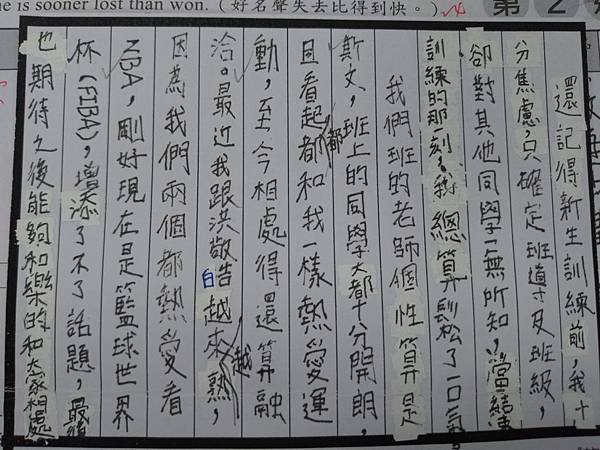 ne is sooner lost than won.（好名聲失去比得到快。）
第 2
還記得新生訓練前，我十
分焦慮，只確定班導及班級，
卻對其他同學一無所知，當結束
訓練的那一刻，我總算鬆了一口氣。
我們班的老師個性算是
斯文，班上的同學大都十分開朗，
且看起都和我一樣熱愛運
都
動，至今相處得還算融
洽。最近我跟洪敬皓越來熟，
越
因為我們兩個都熱愛看
NBA，剛好現在是籃球世界
杯（FIBA），增添了不了話題，最後
也期待之後能夠和樂的和大家相處